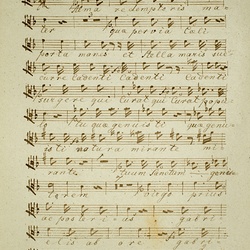 Alma redemptoris ma-
ter quae pervia caeli
porta manes et stella maris suc-
curre cadenti cadenti cadenti
surgere qui curat qui curat populo
tu quae genuisti quae genu-
isti natura mirante mi-
rante tuum sanctum geni-
torem virgo prius
ac posterius gabri-
elis ab ore gabri-